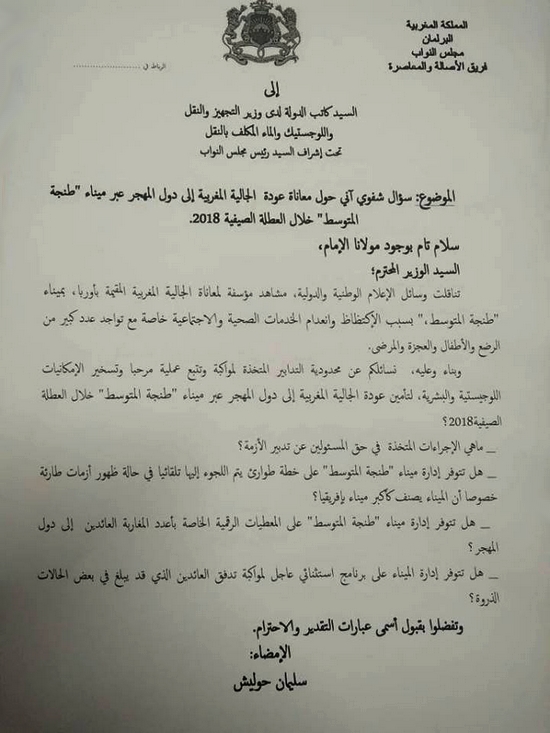 المملكة المغربية
البرلمان
مجلس النواب
فريق الأصالة والمعاصرة
الرباط في ......................
إلى
السيد كاتب الدولة لدى وزير التجهيز والنقل
واللوجستيك والماء المكلف بالنقل
تحت إشراف السيد رئيس مجلس النواب
الموضوع: سؤال شفوي آني حول معاناة عودة الجالية المغربية إلى دول المهجر عبر ميناء "طنجة
المتوسط" خلال العطلة الصيفية 2018.
سلام تام بوجود مولانا الإمام،
السيد الوزير المحترم؛
تناقلت وسائل الإعلام الوطنية والدولية، مشاهد مؤسفة لمعاناة الجالية المغربية المقيمة بأوربا، بميناء
"طنجة المتوسط،" بسبب الإكتظاظ وانعدام الخدمات الصحية والاجتماعية خاصة مع تواجد عدد كبير من
الرضع والأطفال والعجزة والمرضى.
وبناء وعليه، نسائلكم عن محدودية التدابير المتخذة لمواكبة وتتبع عملية مرحبا وتسخير الإمكانيات
اللوجيستية والبشرية، لتأمين عودة الجالية المغربية إلى دول المهجر عبر ميناء "طنجة المتوسط" خلال العطلة
الصيفية2018؟
_ ماهي الإجراءات المتخذة في حق المسئولين عن تدبير الأزمة؟
_ هل تتوفر إدارة ميناء "طنجة المتوسط" على خطة طوارئ يتم اللجوء إليها تلقائيا في حالة ظهور أزمات طارئة
خصوصا أن الميناء يصنف كأكبر ميناء بإفريقيا؟
_ هل تتوفر إدارة ميناء "طنجة المتوسط" على المعطيات الرقمية الخاصة بأعدد المغاربة العائدين إلى دول
المهجر؟
_ هل تتوفر إدارة الميناء على برنامج استثنائي عاجل لمواكبة تدفق العائدين الذي قد يبلغ في بعض الحالات
الذروة؟
وتفضلوا بقبول أسمى عبارات التقدير والاحترام.
الإمضاء:
سليمان حوليش